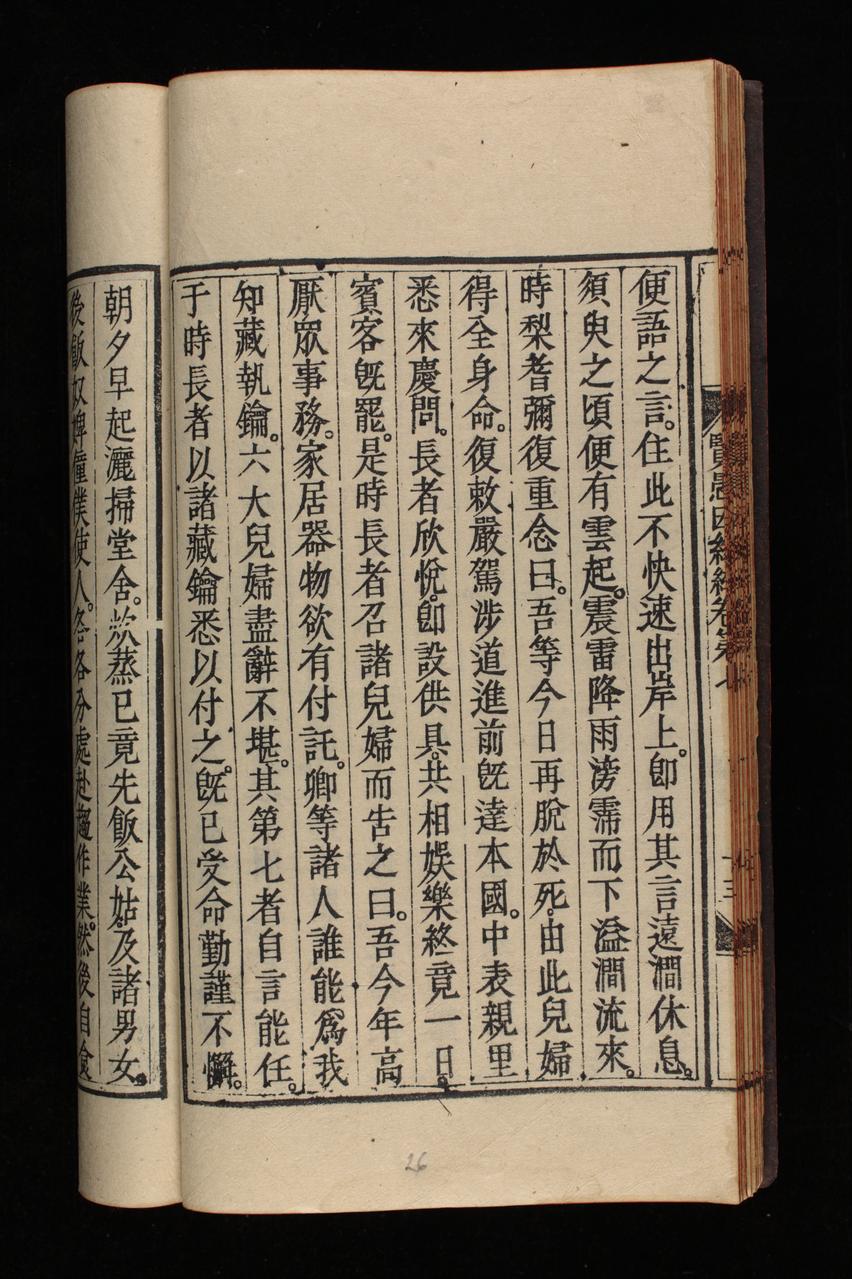 賢愚因緣經卷第七
十三
便語之言。住此不快速出岸上。卽用其言遠澗休息。
須臾之頃便有雲起。震雷降雨滂霈而下溢澗流來。
時梨耆彌復重念曰。吾等今日再脫於死。由此兒婦
得全身命。復敕嚴駕涉道進前旣達本國。中表親里
悉來慶問。長者欣悅。卽設供具。共相娛樂終竟一日。
賓客旣罷。是時長者召諸兒婦而告之曰。吾今年高
厭眾事務。家居器物欲有付託。卿等諸人誰能爲我
知藏執鑰。六大兒婦盡辭不堪。其第七者自言能任。
于時長者以諸藏鑰悉以付之。旣已受命勤謹不懈。
朝夕早起灑掃堂舍。炊蒸已竟先飯公姑。及諸男女。
後飯奴婢僮僕使人。各各分處赴趨作業。然後自食
26